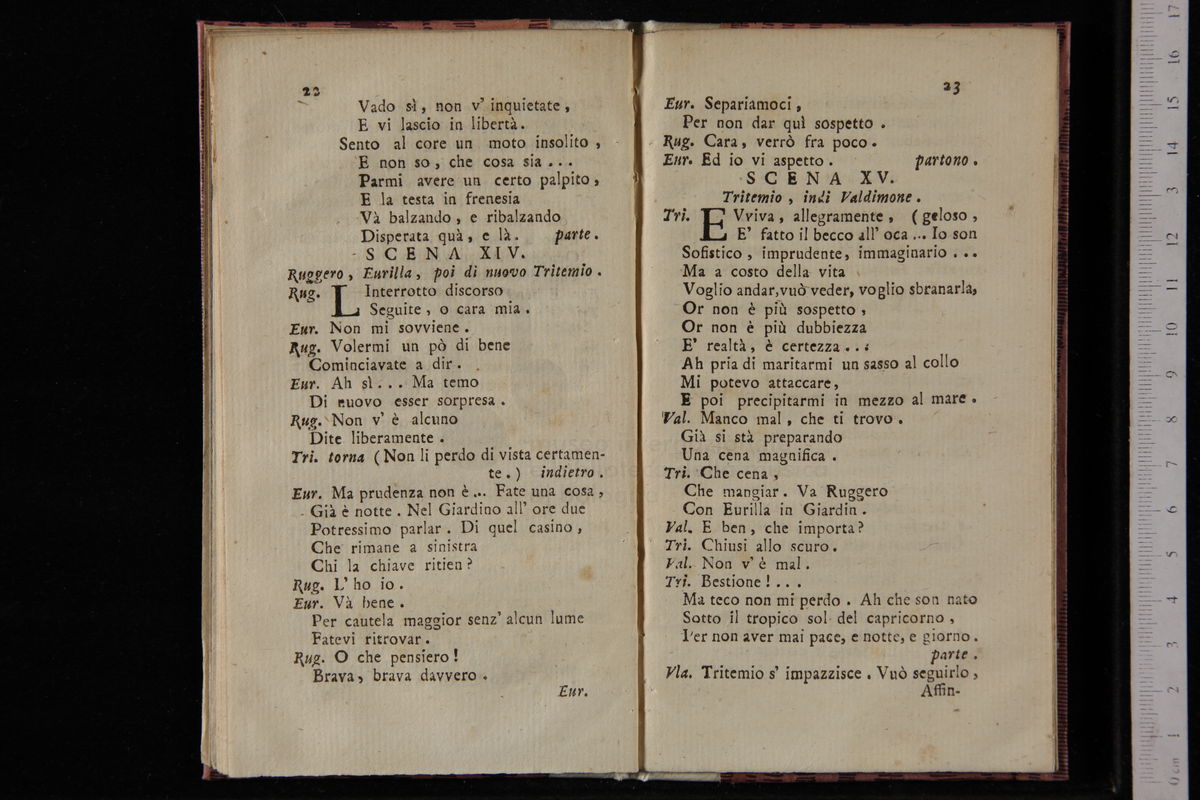 22
Vado sì, non v' inquietate,
E vi lascio in libertà.
Sento al core un moto insolito,
E non so, che cosa sia...
Parmi avere un certo palpito,
E la testa in frenesia
Và balzando, e ribalzando
Disperata quà, e là. parte.
SCENA XIV.
Ruggero, Eurilla, poi di nuovo Tritemio.
Rug. L Interrotto discorso
Seguite, o cara mia.
Eur. Non mi sovviene.
Rug. Volermi un pò di bene
Cominciavate a dir.
Eur. Ah sì... Ma temo
Di nuovo esser sorpresa.
Rug. Non v' è alcuno
Dite liberamente.
Tri. torna (Non li perdo di vista certamen-
te.) indietro.
Eur. Ma prudenza non è... Fate una cosa,
Già è notte. Nel Giardino all' ore due
Potressimo parlar. Di quel casino,
Che rimane a sinistra
Chi la chiave ritien?
Rug. L' ho io.
Eur. Và bene.
Per cautela maggior senz' alcun lume
Fatevi ritrovar.
Rug. O che pensiero!
Brava, brava davvero.
Eur.
23
Eur. Separiamoci,
Per non dar quì sospetto.
Rug. Cara, verrò fra poco.
Eur. Ed io vi aspetto. partono.
SCENA XV.
Tritemio, indi Valdimone.
Tri. E Vviva, allegramente, (geloso,
E' fatto il becco all' oca... Io son
Sofistico, imprudente, immaginario...
Ma a costo della vita
Voglio andar, vuò veder, voglio sbranarla,
Or non è più sospetto,
Or non è più dubbiezza
E' realtà, è certezza...
Ah pria di maritarmi un sasso al collo
Mi potevo attaccare,
E poi precipitarmi in mezzo al mare.
Val. Manco mal, che ti trovo.
Già si stà preparando
Una cena magnifica.
Tri. Che cena,
Che mangiar. Va Ruggero
Con Eurilla in Giardin.
Val. E ben, che importa?
Tri. Chiusi allo scuro.
Val. Non v' è mal.
Tri. Bestione!...
Ma teco non mi perdo. Ah che son nato
Sotto il tropico sol del capricorno,
Per non aver mai pace, e notte, e giorno.
parte.
Vla. Tritemio s' impazzisce. Vuò seguirlo,
Affin-
17
16
15
14
13
12
11
10
9
8
7
6
5
4
3
2
1
0 cm